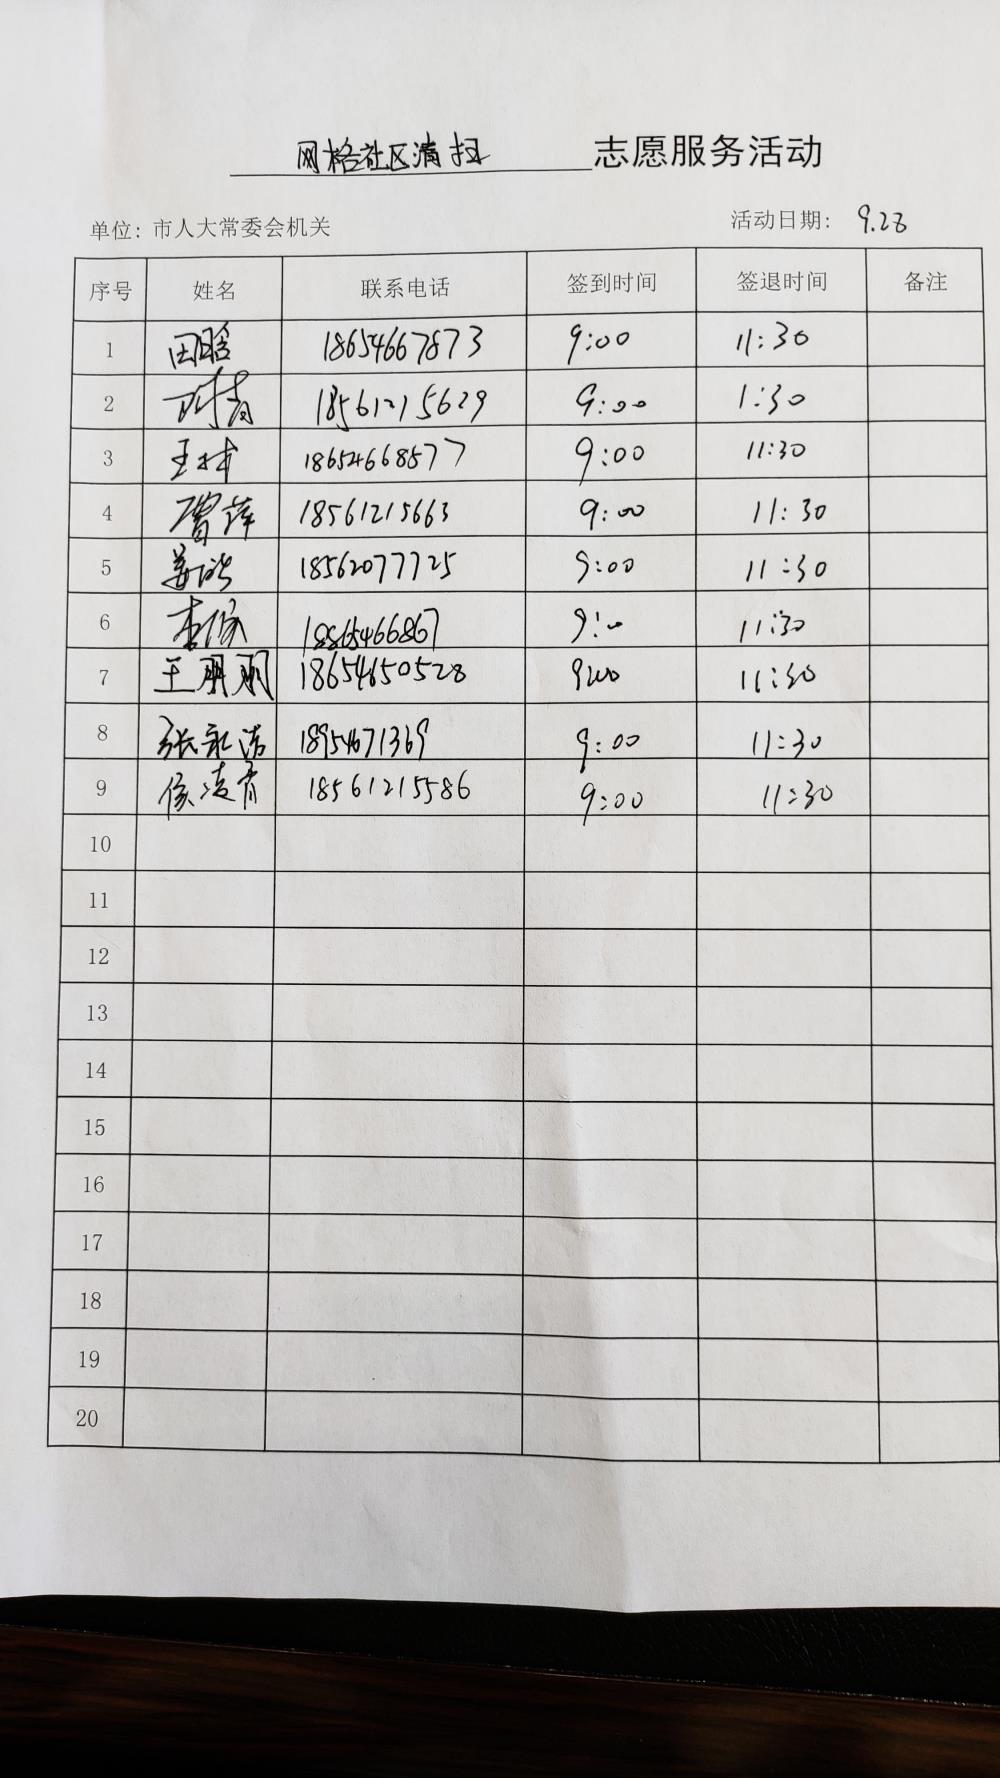 网格社区清扫 志愿服务活动
单位：市人大常委会机关 活动日期： 9.28
序号 姓名 联系电话 签到时间 签退时间 备注
1 田晗 18654667873 9:00 11:30
2 18561215629 9:00 1:30
3 王林 18654668577 9:00 11:30
4 曾萍 18561215663 9:00 11:30
5 姜皓 18562077725 9:00 11:30
6 李俊 9:00 11:30
7 王朋朋 18654650528 9:00 11:30
8 张永洁 18954671369 9:00 11:30
9 侯凌青 18561215586 9:00 11:30
10
11
12
13
14
15
16
17
18
19
20